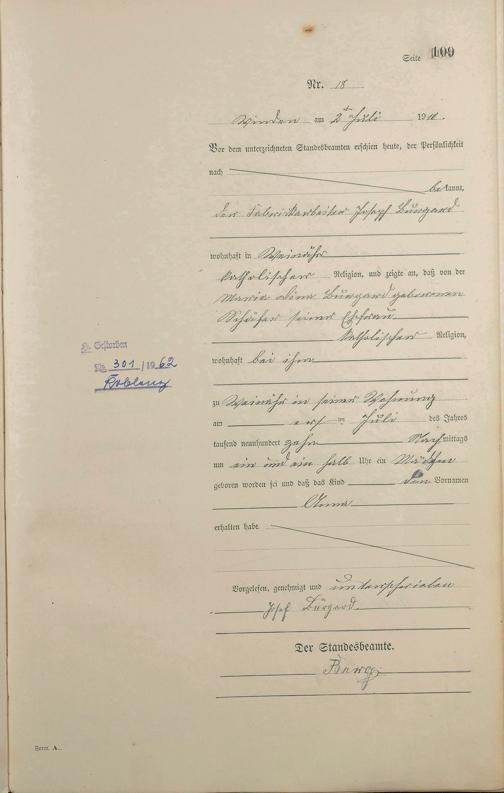 Seite 109
Nr. 18
Winden am 2ten Juli 1910.
Vor dem unterzeichneten Standesbeamten erschien heute, der Persönlichkeit
nach
bekannt,
der Fabrikarbeiter Josef Burgard
wohnhaft in Weinähr
katholischer Religion, und zeigte an, daß von der
Maria Burgard geborenen
Schäfer seiner Ehefrau
katholischer Religion,
wohnhaft bei ihm
Gestorben
Nr. 301/1962
Koblenz
zu Weinähr in seiner Wohnung
am ersten Juli des Jahres
tausend neunhundert zehn Nachmittags
um ein und ein halb Uhr ein Mädchen
geboren worden sei und daß das Kind den Vornamen
Anna
erhalten habe
Vorgelesen, genehmigt und unterschrieben
Josef Bürgard
Der Standesbeamte.
Form. A.